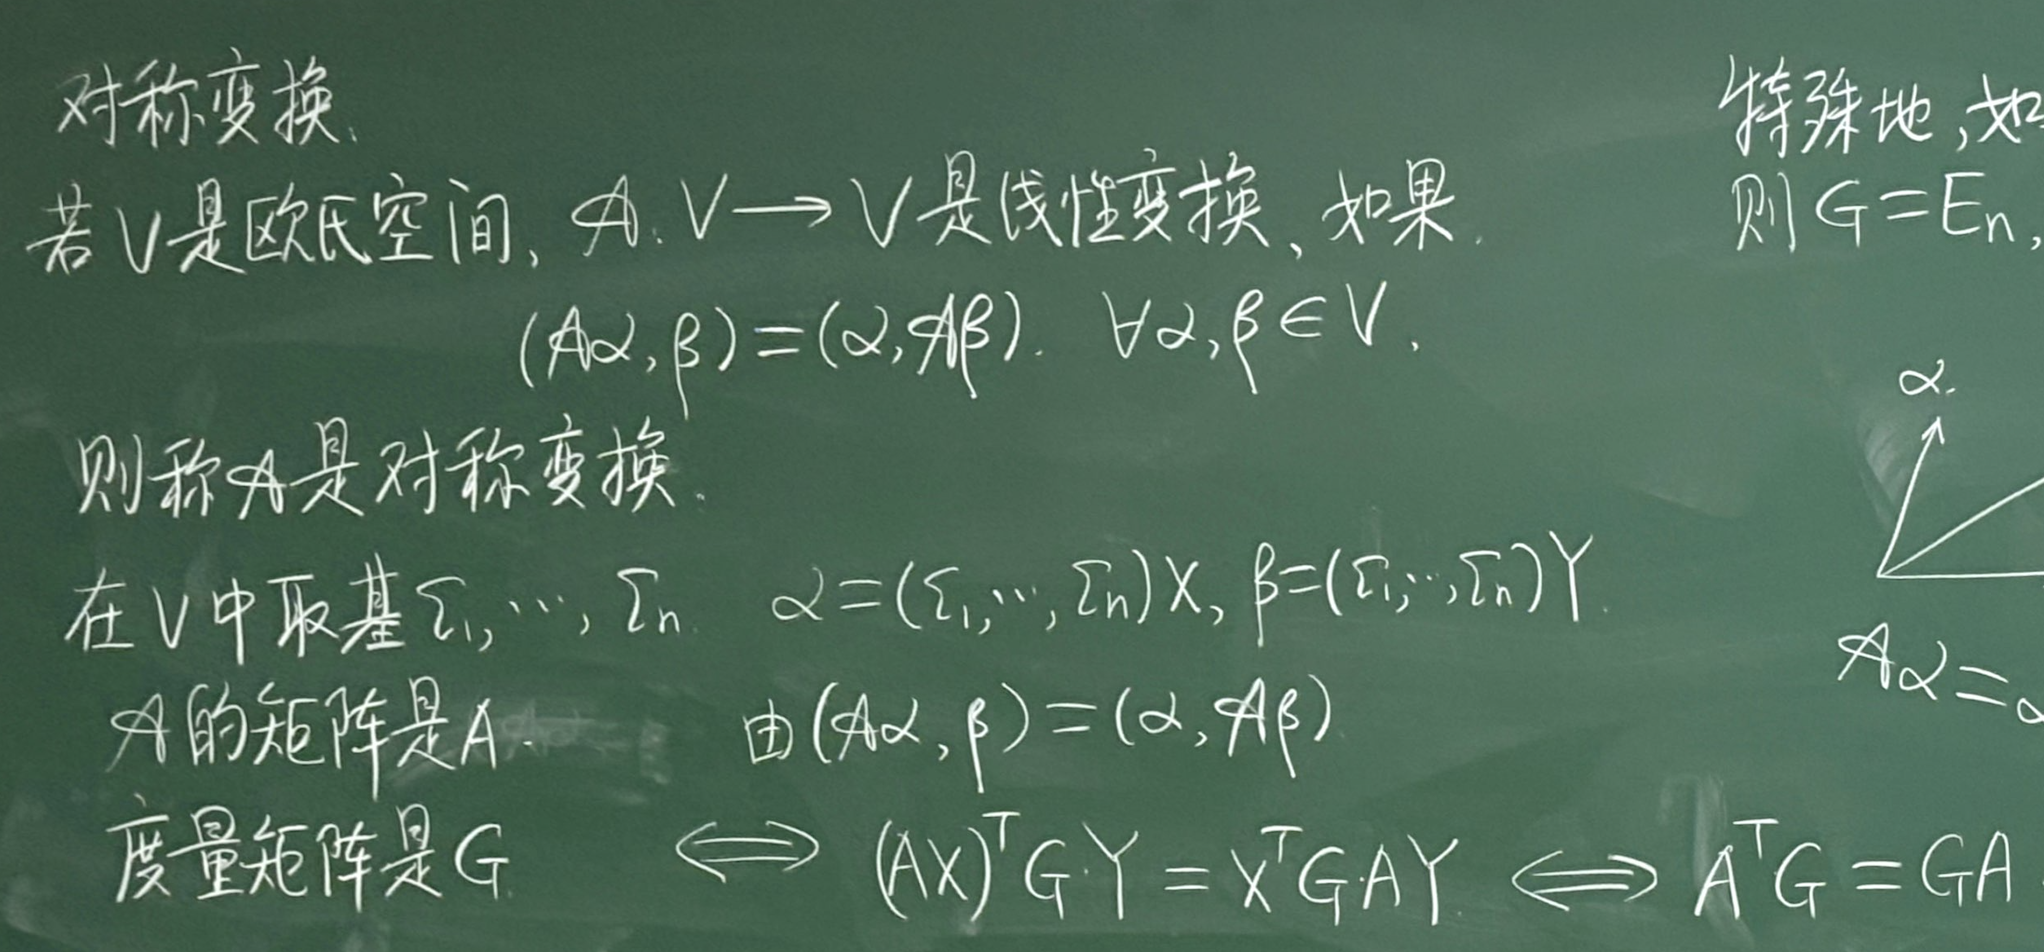 对称变换.
若V是欧氏空间, 𝒜: V⟶V是线性变换、如果.
(𝒜α, β)=(α, 𝒜β). ∀α, β∈V.
则称𝒜是对称变换.
在V中取基ξ₁, ⋯, ξₙ. α=(ξ₁, ⋯, ξₙ)X, β=(ξ₁, ⋯, ξₙ)Y.
𝒜的矩阵是A. 由(𝒜α, β)=(α, 𝒜β)
度量矩阵是G. ⟺ (AX)ᵀG·Y = XᵀG·AY. ⟺ AᵀG=GA
特殊地, 如
则G=Eₙ,
α.
𝒜α=